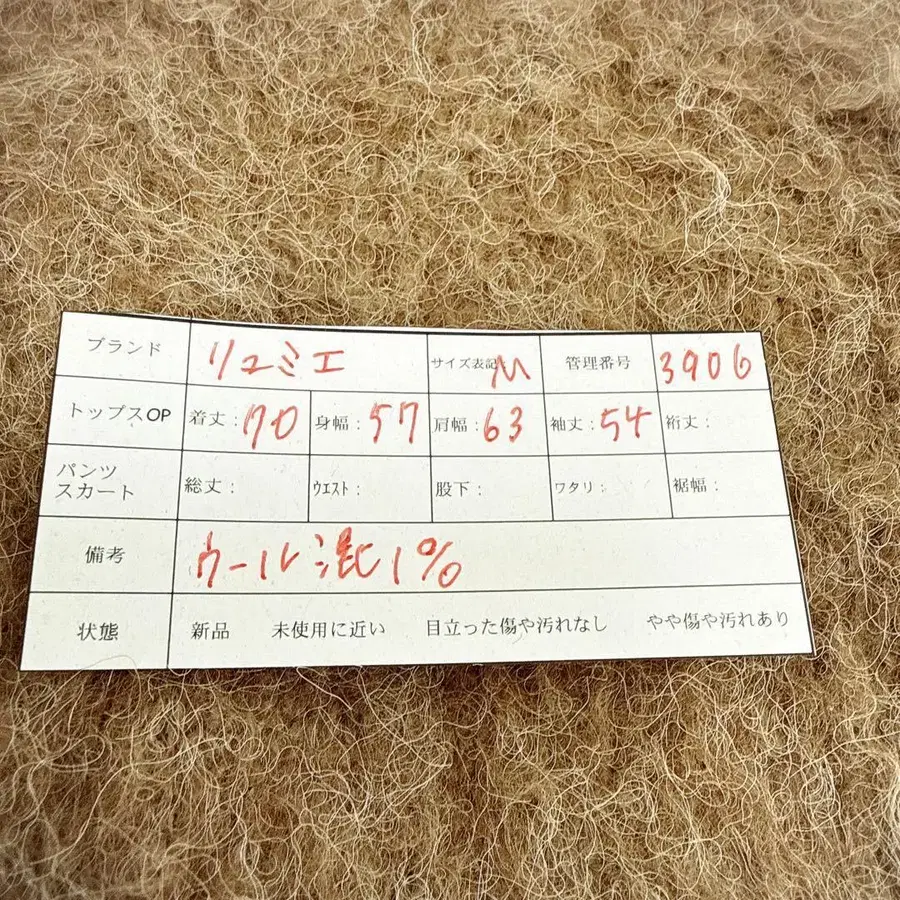 ブランド リュミエ サイズ表記 M 管理番号 3906
トップスOP 着丈: 70 身幅: 57 肩幅: 63 袖丈: 54 裄丈:
パンツ
スカート 総丈: ウエスト: 股下: ワタリ: 裾幅:
備考 ウール混1%
状態 新品 未使用に近い 目立った傷や汚れなし やや傷や汚れあり